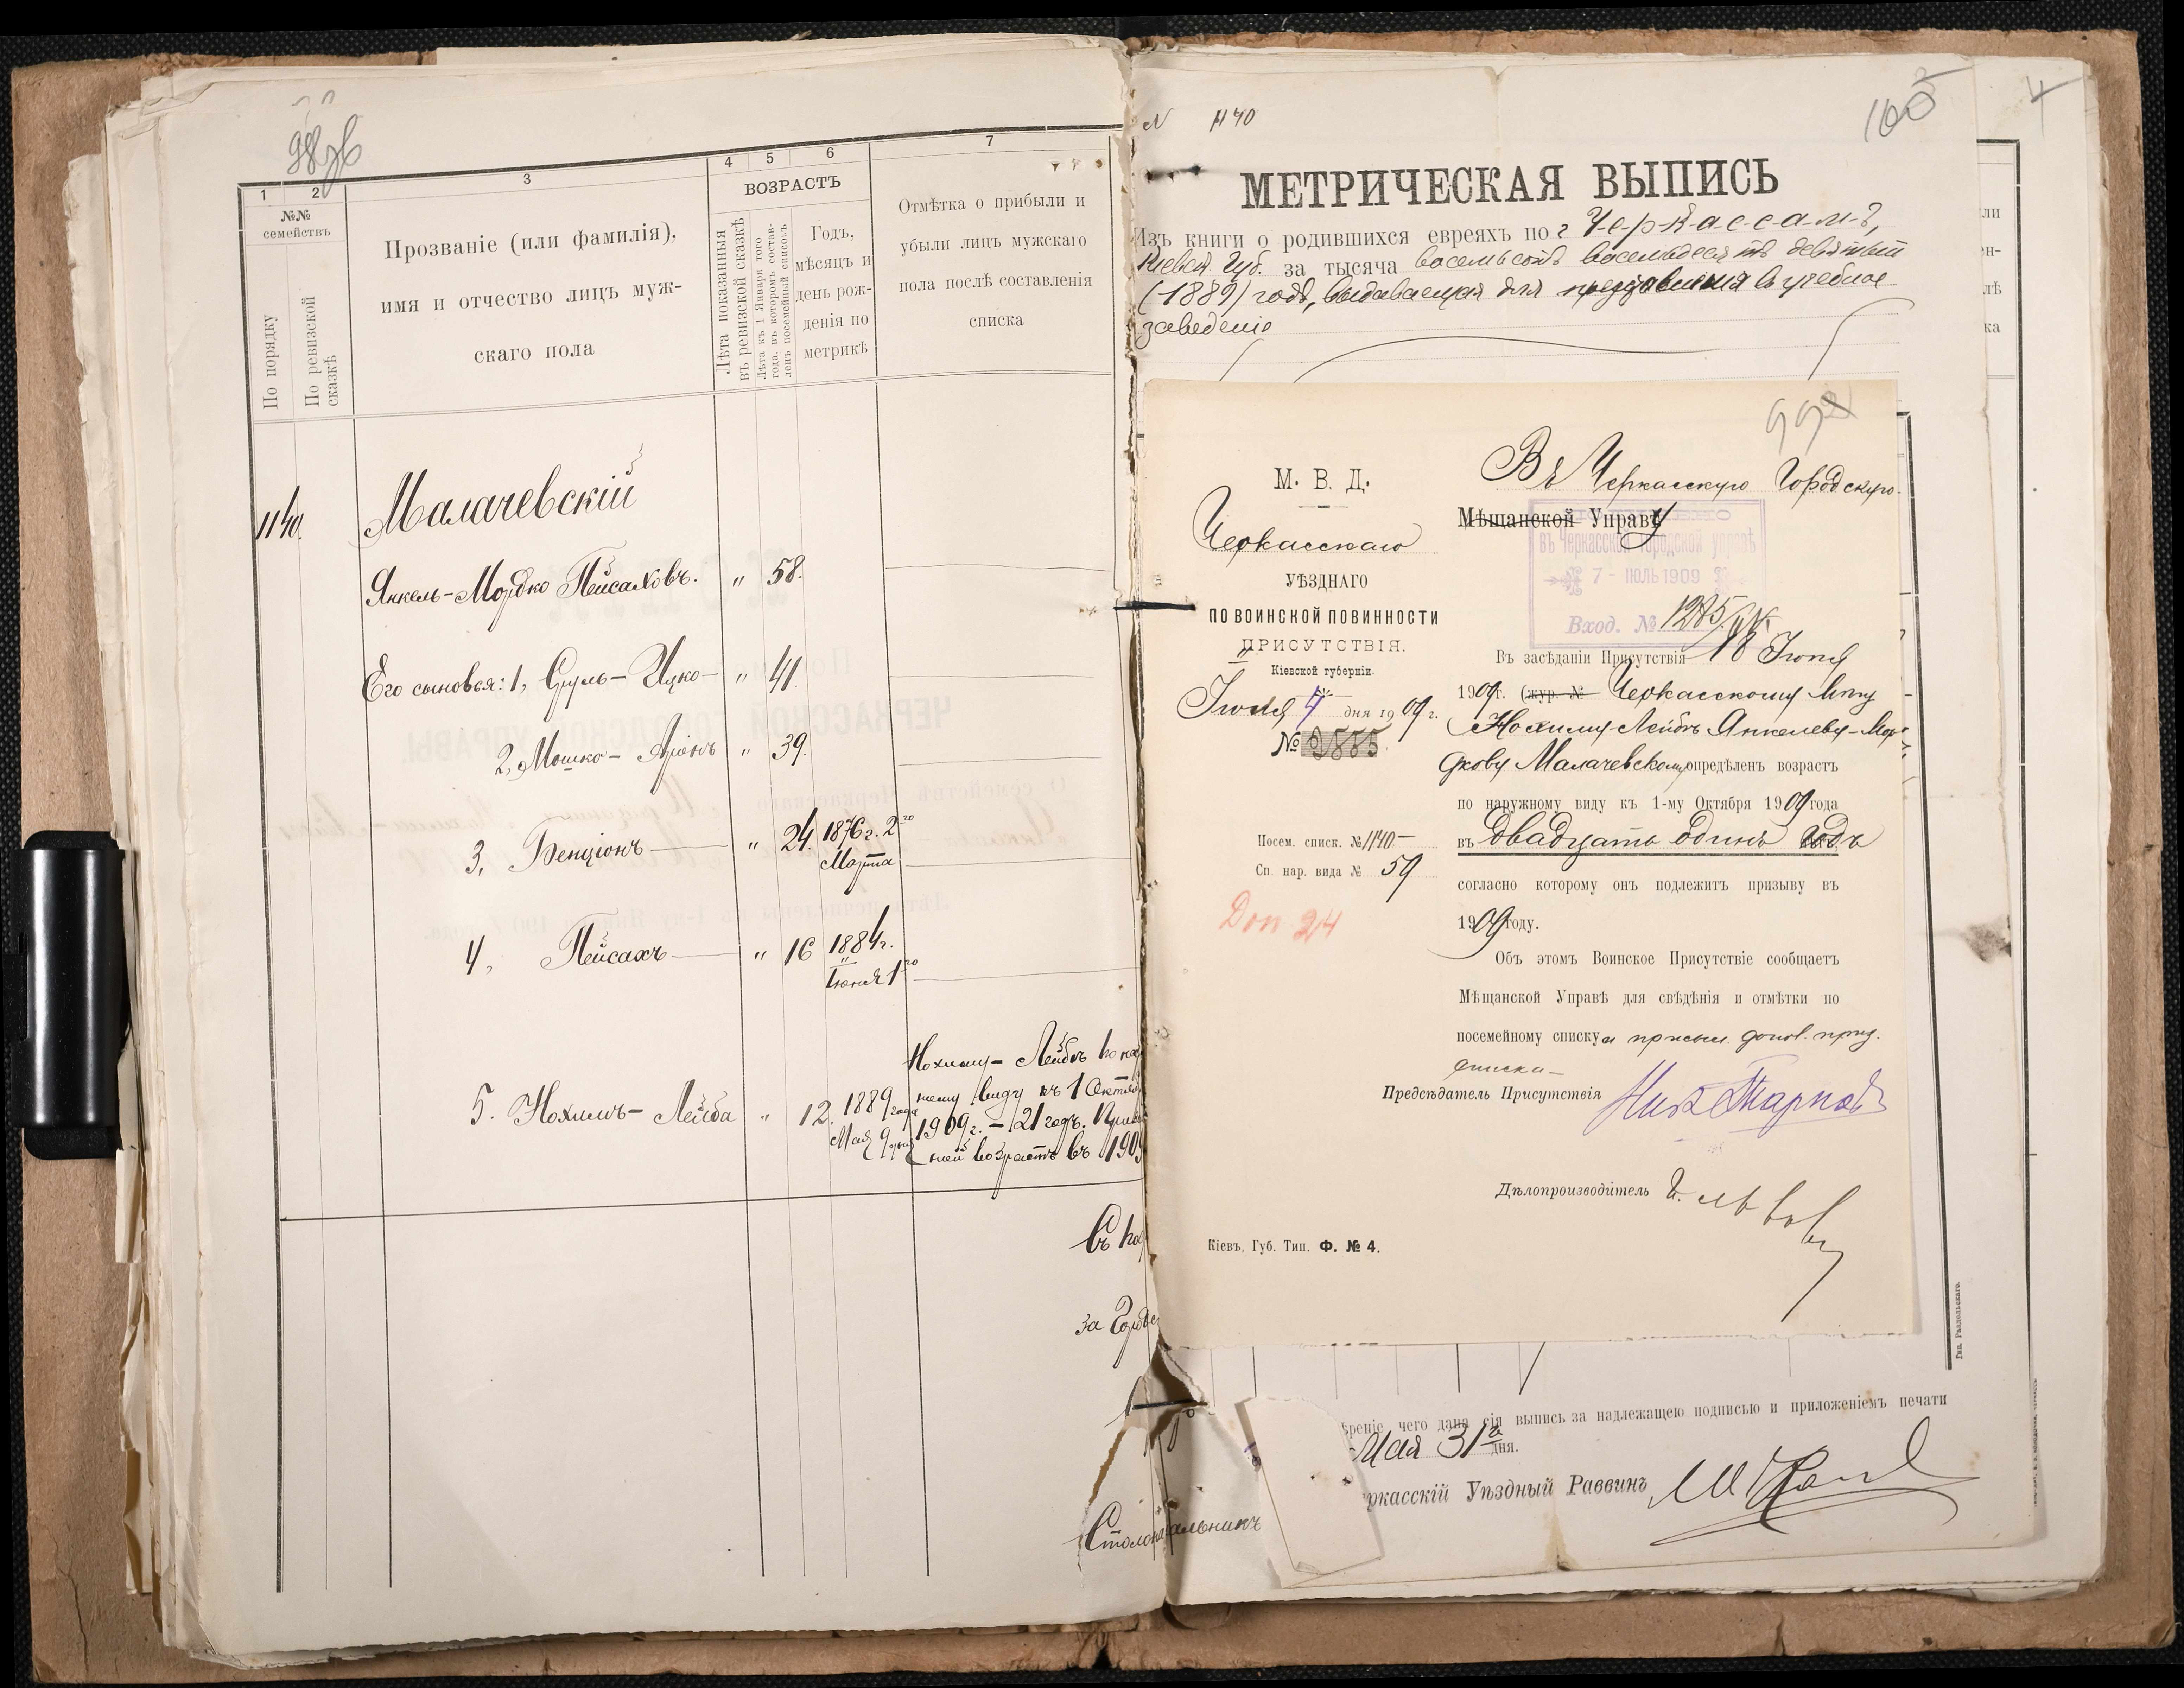 98 об
1
2
3
4
5
6
7
№№
семействъ
По порядку
По ревизской
сказкѣ
Прозваніе (или фамилія),
имя и отчество лицъ муж-
скаго пола
ВОЗРАСТЪ
Лѣта показанныя
въ ревизской сказкѣ
Лѣта къ 1 Января того
года, въ которомъ состав-
ленъ посемейный списокъ
Годъ,
мѣсяцъ и
день рож-
денія по
метрикѣ
Отмѣтка о прибыли и
убыли лицъ мужскаго
пола послѣ составленія
списка
1140.
Малачевскій
Янкель-Мордко Пейсаховъ. " 58.
Его сыновья: 1, Сруль-Ицко- " 41.
2, Мошко- Аронъ " 39.
3, Бенціонъ " 24. 1876 г. 2го
Марта
4, Пейсахъ " 16 1884 г.
Іюня 1го
5. Нохимъ- Лейба " 12. 1889 года
Мая 9 дня
Нохиму- Лейбѣ по на
ному виду къ 1 Октя
1909 г. - 21 годъ.
возрастъ въ 1909
Съ по
за Город
Столоначальникъ
N 1140
100
4
МЕТРИЧЕСКАЯ ВЫПИСЬ
Изъ книги о родившихся евреяхъ по г. Черкассамъ,
Кіевск. Губ. за тысяча восемьсотъ восемьдесятъ девятый
(1889) годъ, выдаваемая для представленія въ учебное
заведеніе
99
М. В. Д.
Черкасскаго
УѢЗДНАГО
ПО ВОИНСКОЙ ПОВИННОСТИ
ПРИСУТСТВІЯ.
Кіевской губерніи.
Іюля 4 дня 1909 г.
№ 2885
Посем. списк. № 1140
Сп. нар. вида № 59
Доп 24
Въ Черкасскую Городскую
Мѣщанской Управу
въ Черкасской городской управѣ
7 - ІЮЛЬ 1909
Вход. № 1285
Въ засѣданіи Присутствія 18 Іюня
1909 г. (жур. № Черкасскому мѣщ
Нохиму-Лейбѣ Янкелеву-Мор
дкову Малачевскому опредѣленъ возрастъ
по наружному виду къ 1-му Октября 1909 года
въ двадцать одинъ годъ
согласно которому онъ подлежитъ призыву въ
1909 году.
Объ этомъ Воинское Присутствіе сообщаетъ
Мѣщанской Управѣ для свѣдѣнія и отмѣтки по
посемейному списку и присыл. допол. приз.
списка
Предсѣдатель Присутствія
Дѣлопроизводитель
Кіевъ, Губ. Тип. Ф. № 4.
ѣреніе чего дана сія выпись за надлежащею подписью и приложеніемъ печати
Мая 31 дня.
ркасскій Уѣздный Раввинъ